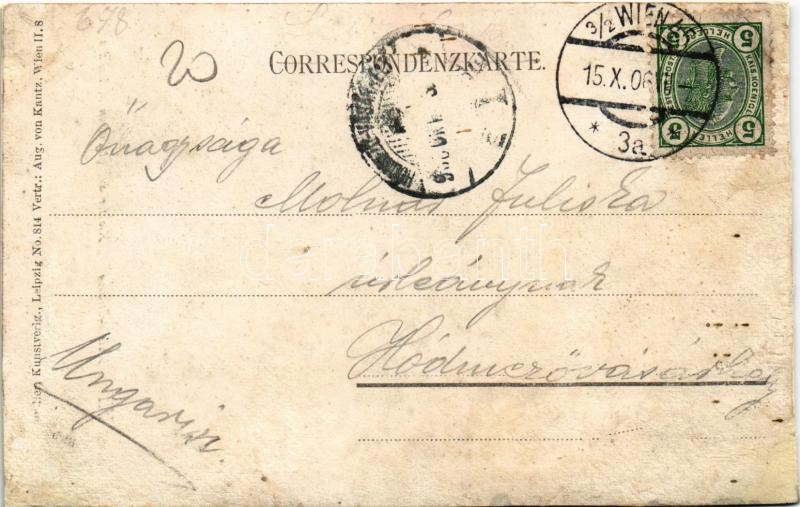 678
20
CORRESPONDENZKARTE.
3/2 WIEN
15.X.06
* 3a
5 5
HELLER
5 5
Őnagysága
Molnár Juliska
úrleánynak
Hódmezővásárhely
Ungarn.
Kunstverlg., Leipzig No. 814 Vertr.: Aug. von Kantz, Wien II. 8
darabanth